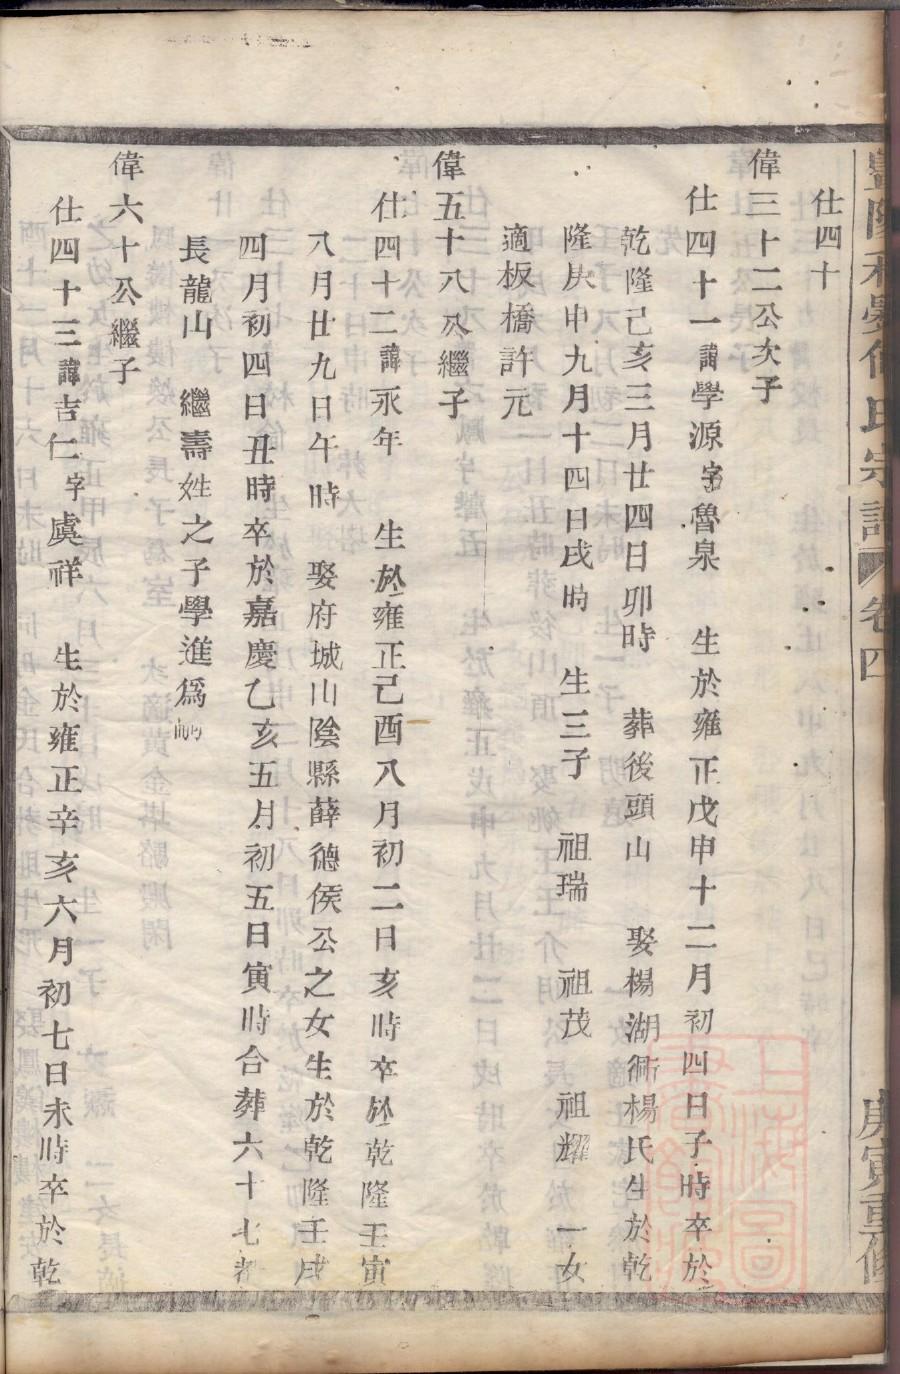 仕四十
偉三十二公次子
仕四十一諱學源字魯泉 生於雍正戊申十二月初四日子時卒於
乾隆己亥三月廿四日卯時 葬後頭山 娶楊湖衕楊氏生於乾
隆庚申九月十四日戌時 生三子 祖瑞 祖茂 祖耀 一女
適板橋許元
偉五十八公繼子
仕四十二諱永年 生於雍正己酉八月初二日亥時卒於乾隆壬寅
八月廿九日午時 娶府城山陰縣薛德侯公之女生於乾隆壬戌
四月初四日丑時卒於嘉慶乙亥五月初五日寅時合葬六十七都
長龍山 繼壽姓之子學進爲嗣
偉六十公繼子
仕四十三諱吉仁字虞祥 生於雍正辛亥六月初七日未時卒於乾
氏宗譜 卷四 庚寅重修